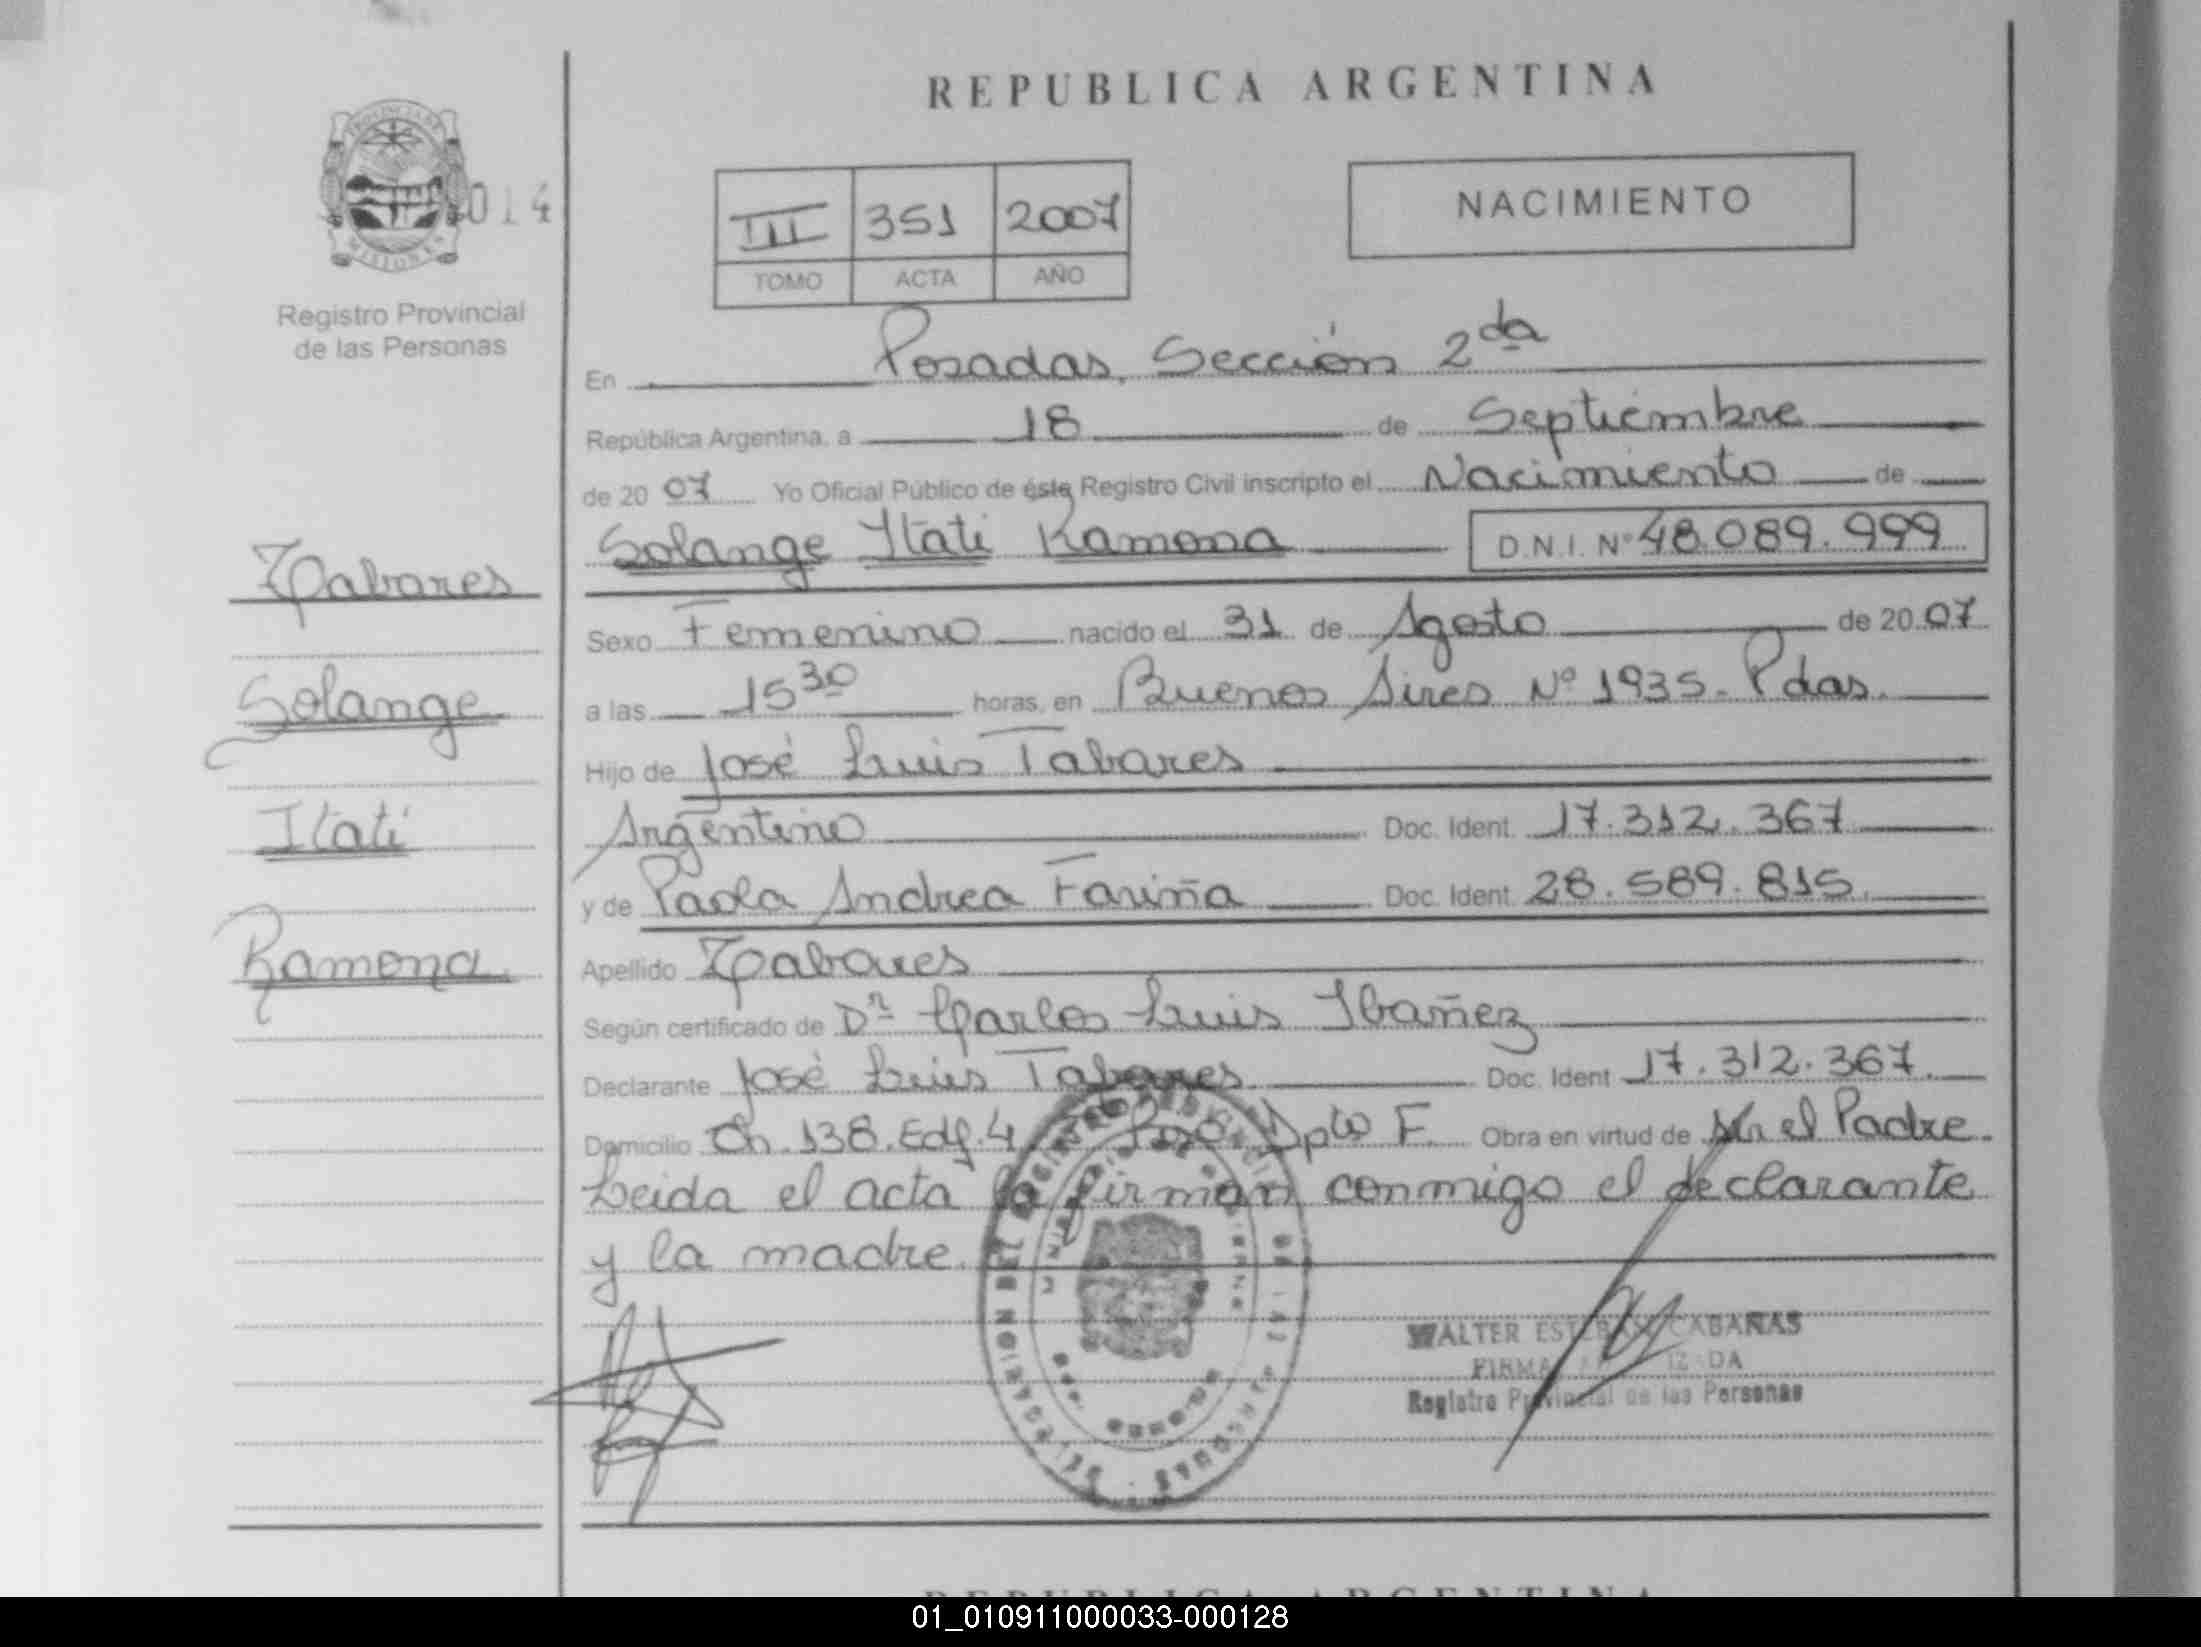 REPUBLICA ARGENTINA
PROVINCIA DE
MISIONES
014
Registro Provincial
de las Personas
III 351 2007
TOMO ACTA AÑO
NACIMIENTO
En Posadas, Sección 2da
República Argentina, a 18 de Septiembre
de 20 07 Yo Oficial Público de éste Registro Civil inscripto el Nacimiento de
Solange Itati Ramona D.N.I. Nº 48.089.999
Tabares
Solange
Itatí
Ramona
Sexo Femenino nacido el 31 de Agosto de 20 07
a las 15 30 horas, en Buenos Aires Nº 1935. Pdas.
Hijo de José Luis Tabares
Argentino Doc. Ident. 17.312.367
y de Paola Andrea Fariña Doc. Ident. 28.589.815.
Apellido Tabares
Según certificado de Dr Carlos Luis Ibañez
Declarante José Luis Tabares Doc. Ident 17.312.367.
Domicilio Ch. 138. Edf. 4 Dpto F. Obra en virtud de el Padre.
Leida el acta la firman conmigo el declarante
y la madre.
WALTER ESTEBAN CABAÑAS
FIRMA
Registro Provincial de las Personas
REPUBLICA ARGENTINA
01_010911000033-000128